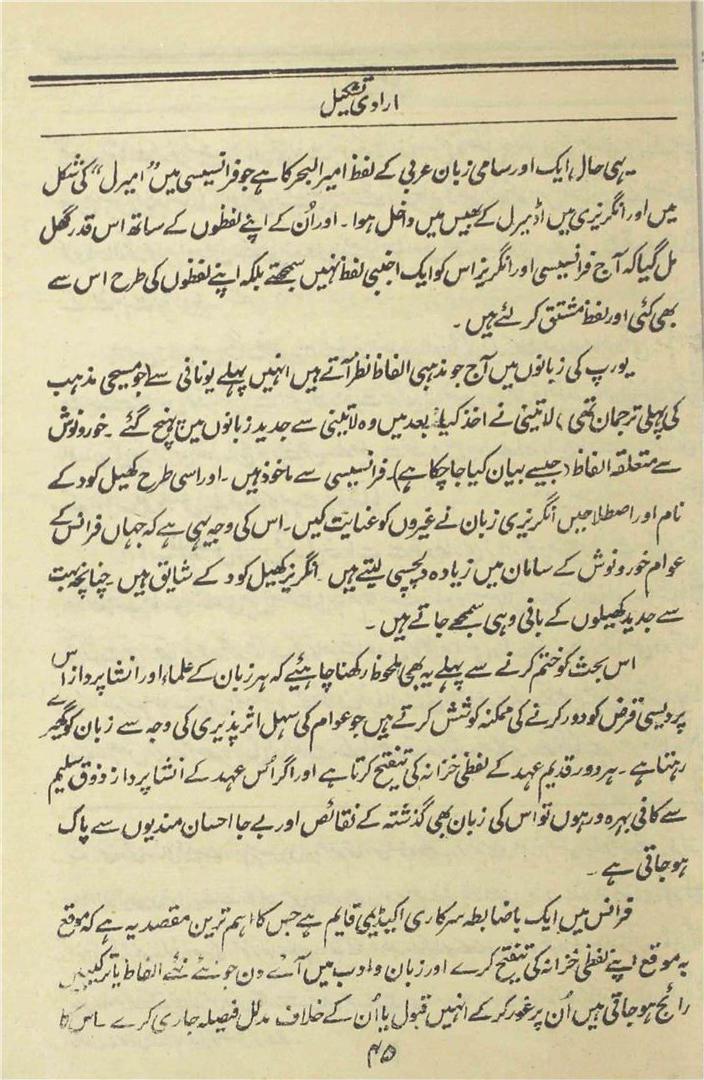 ارادی تشکیل
یہی حال ایک اور سامی زبان عربی کے لفظ امیر البحر کا ہے جو فرانسیسی میں "امیرل" کی شکل
میں اور انگریزی میں اڈمیرل کے بھیس میں داخل ہوا۔ اور اُن کے اپنے لفظوں کے ساتھ اس قدر گھل
مل گیا کہ آج فرانسیسی اور انگریز اس کو ایک اجنبی لفظ نہیں سمجھتے بلکہ اپنے لفظوں کی طرح اس سے
بھی کئی اور لفظ مشتق کر لئے ہیں ۔
یورپ کی زبانوں میں آج جو مذہبی الفاظ نظر آتے ہیں انہیں پہلے یونانی سے (جو مسیحی مذہب
کی پہلی ترجمان تھی) لاتینی نے اخذ کیا۔ بعد میں وہ لاتینی سے جدید زبانوں میں پہنچ گئے ۔ خور و نوش
سے متعلقہ الفاظ (جیسے بیان کیا جا چکا ہے) فرانسیسی سے ماخوذ ہیں ۔ اور اسی طرح کھیل کود کے
نام اور اصطلاحیں انگریزی زبان نے غیروں کو عنایت کیں ۔ اس کی وجہ یہی ہے کہ جہاں فرانس کے
عوام خور و نوش کے سامان میں زیادہ دلچسپی لیتے ہیں ۔ انگریز کھیل کود کے شایق ہیں چنانچہ بہت
سے جدید کھیلوں کے بانی وہی سمجھے جاتے ہیں ۔
اس بحث کو ختم کرنے سے پہلے یہ بھی ملحوظ رکھنا چاہئیے کہ ہر زبان کے علماء اور انشا پرداز اس
پردیسی قرض کو دور کرنے کی ممکنہ کوشش کرتے ہیں جو عوام کی سہل اثر پذیری کی وجہ سے زبان کو گھیرے
رہتا ہے ۔ ہر دور قدیم عہد کے لفظی خزانہ کی تنقیح کرتا ہے اور اگر اُس عہد کے انشا پرداز ذوق سلیم
سے کافی بہرہ ور ہوں تو اس کی زبان بھی گذشتہ کے نقائص اور بے جا احسان مندیوں سے پاک
ہو جاتی ہے ۔
فرانس میں ایک باضابطہ سرکاری اکیڈیمی قایم ہے جس کا اہم ترین مقصد یہ ہے کہ موقع
بہ موقع اپنے لفظی خزانہ کی تنقیح کرے اور زبان و ادب میں آئے دن جو نئے نئے الفاظ یا ترکیبیں
رائج ہو جاتی ہیں اُن پر غور کر کے انہیں قبول یا اُن کے خلاف مدلل فیصلہ جاری کرے ۔ اس کا
۴۵